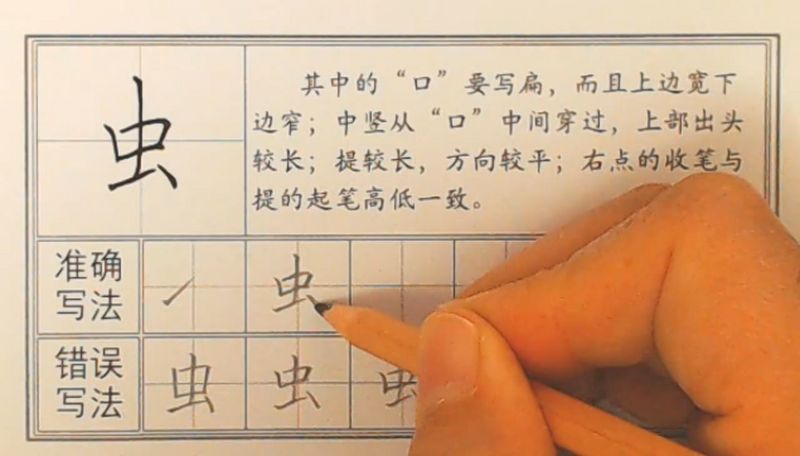 虫
其中的“口”要写扁，而且上边宽下
边窄；中竖从“口”中间穿过，上部出头
较长；提较长，方向较平；右点的收笔与
提的起笔高低一致。
准确
写法
虫
错误
写法
虫 虫 虫